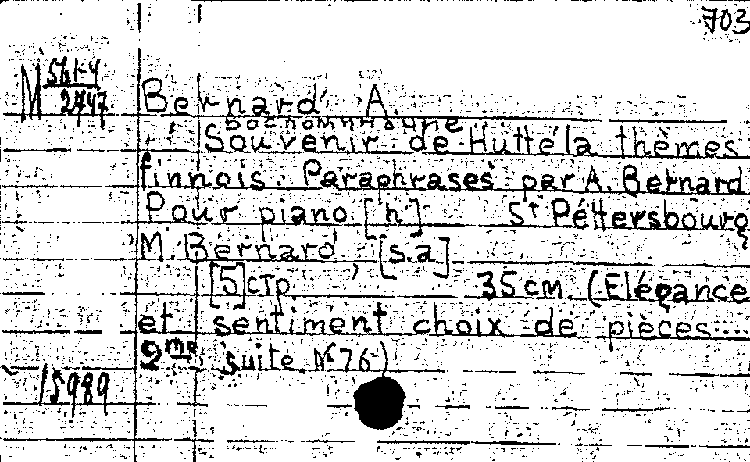 703
M 561-4
2747
Bernard A.
воспоминание
Souvenir de Huttéla thèmes
finnois. Paraphrases par A. Bernard
Pour piano. [h]. St Péttersbourg
M. Bernard, [s.a]
[5] стр. 35 cm. (Elégance
et sentiment choix de pièces...
2me suite. N 76)
15989